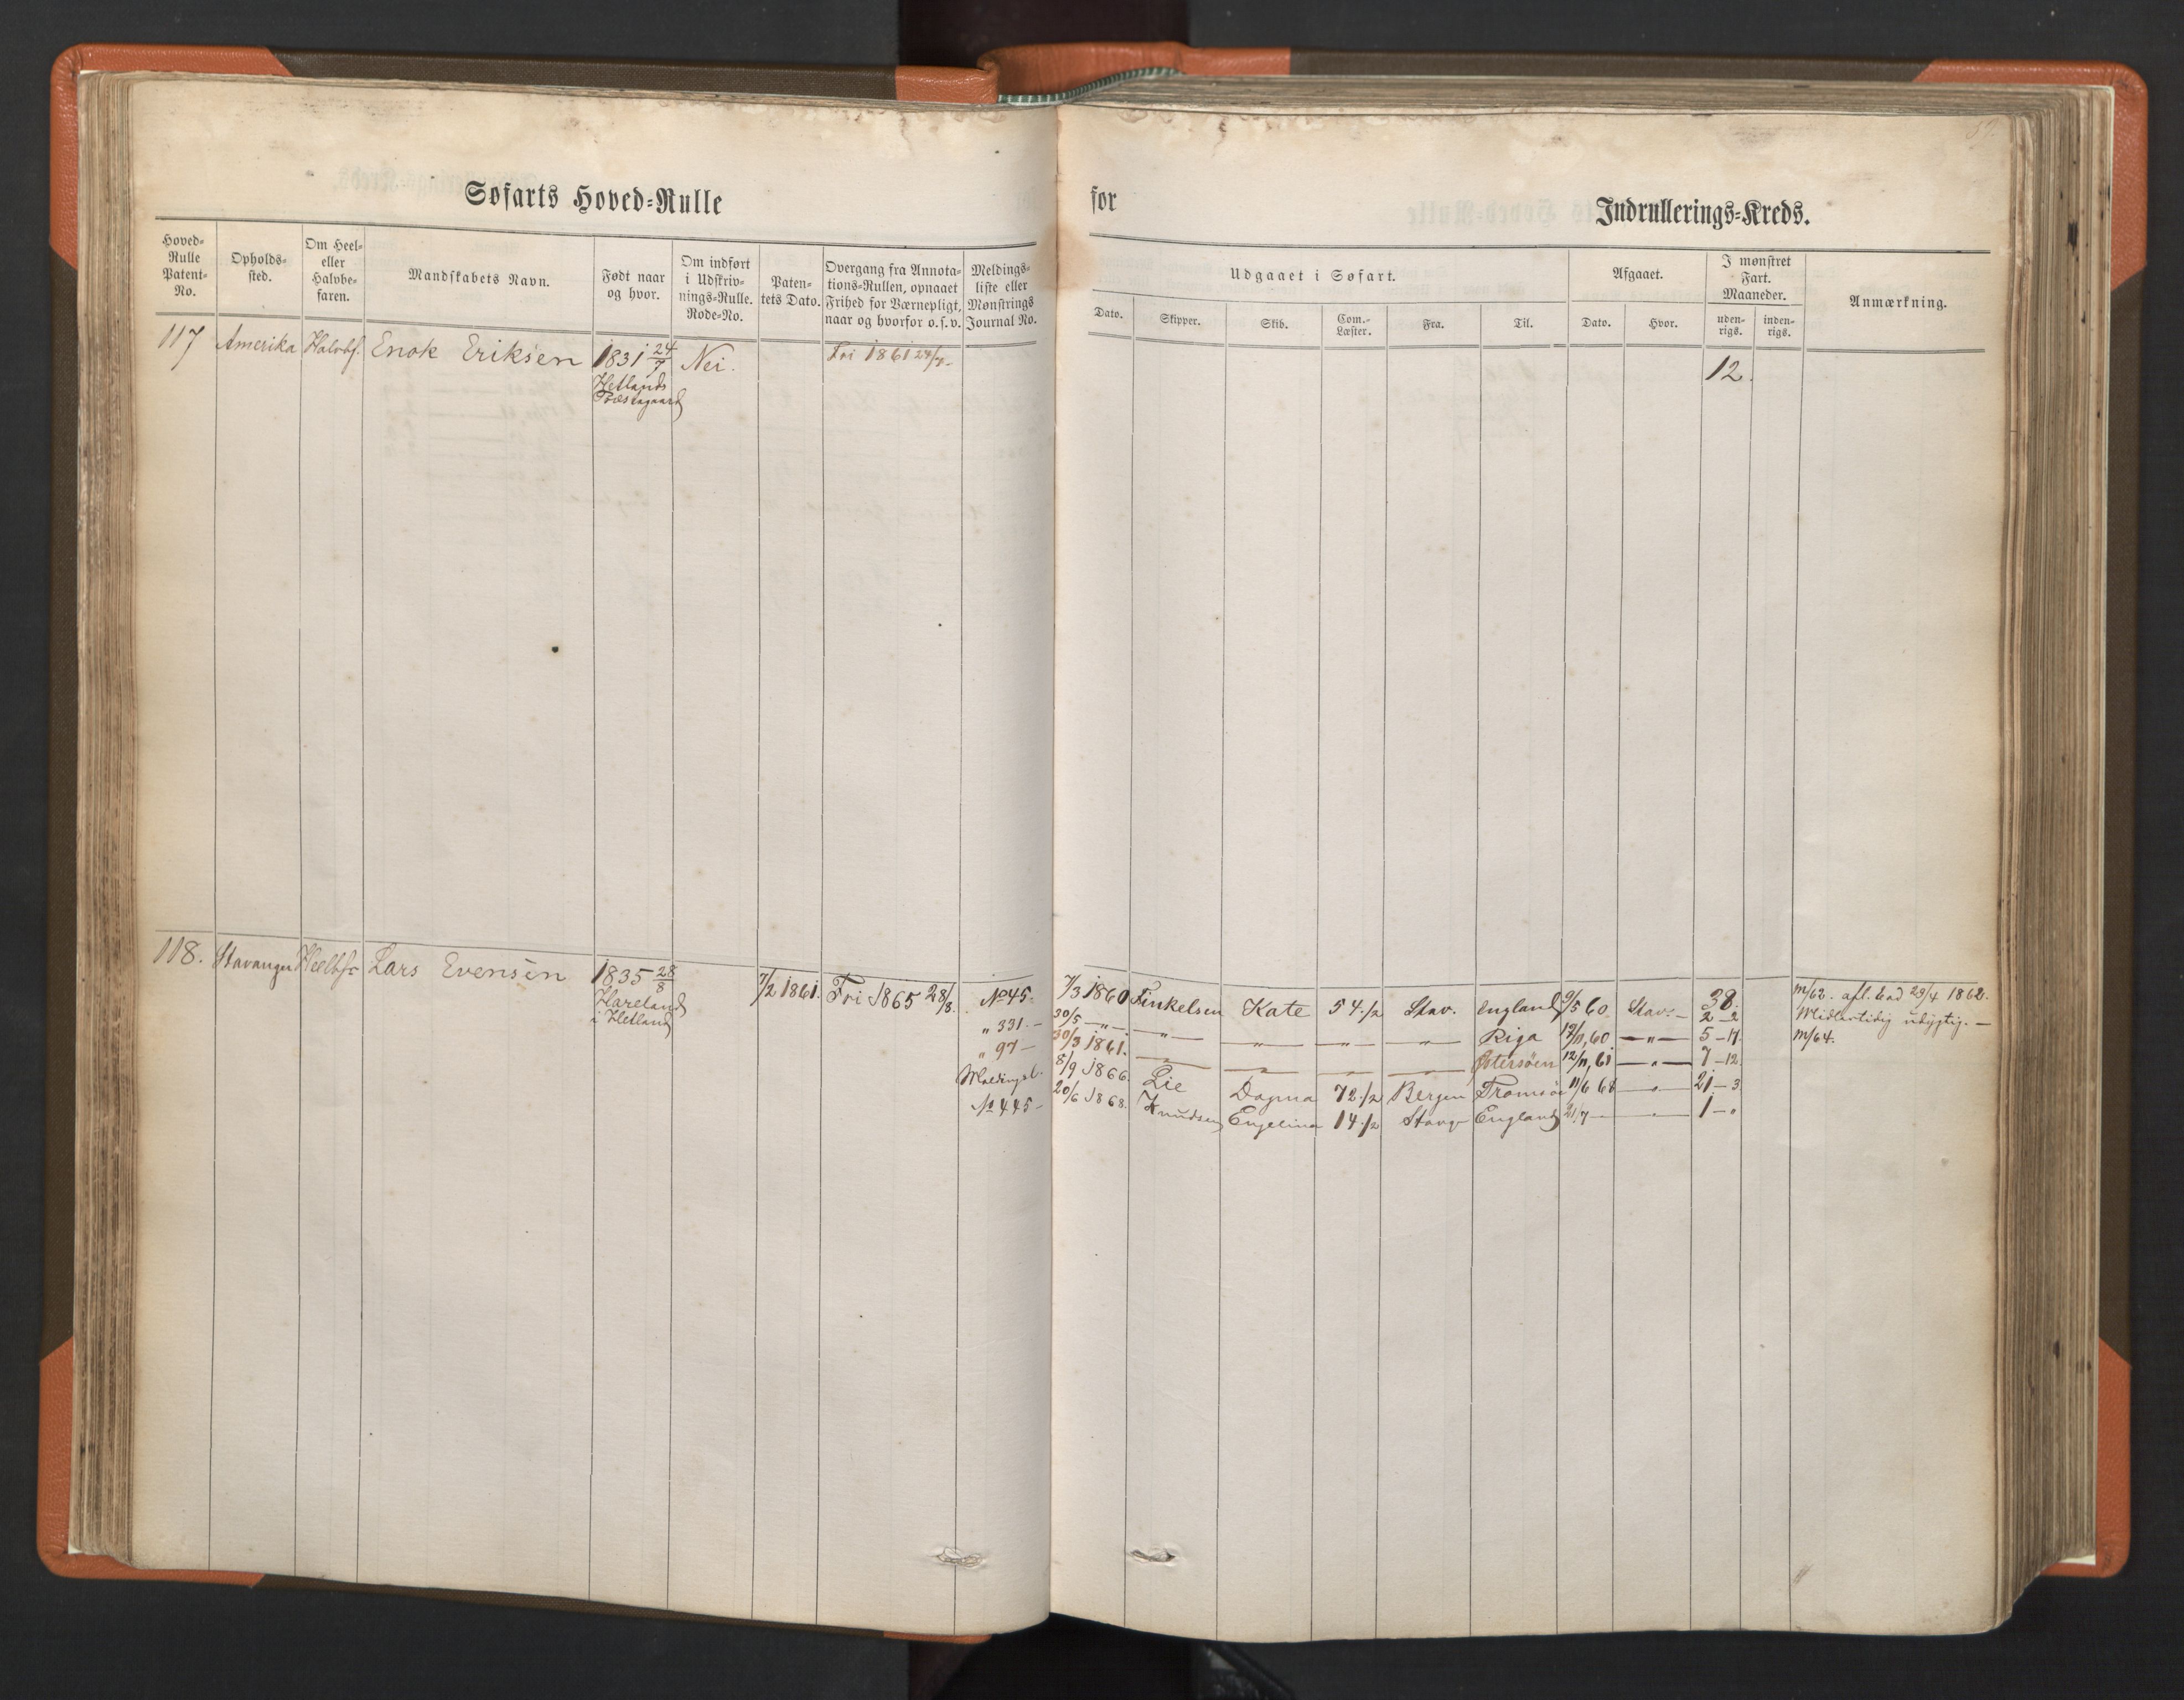 Søfarts Hoved=Rulle for Indrullerings=Kreds.
Hoved=Rulle Patent=No.
Opholds=sted.
Om Heel= eller Halvbe=faren.
Mandskabets Navn.
Født naar og hvor.
Om indført i Udskriv=nings=Rulle. Rode=No.
Paten=tets Dato.
Overgang fra Annota=tions=Rullen, opnaaet Frihed for Værnepligt, naar og hvorfor o. s. v.
Meldings=liste eller Mønstrings Journal No.
Udgaaet i Søfart.
Afgaaet.
I mønstret Fart. Maaneder.
Anmærkning.
Dato. Skipper. Skib. Com.=Læster. Fra. Til. Dato. Hvor. uden=rigs. inden=rigs.
117 Amerika Halvbf. Enok Eriksen 1831 24/7 Nei. Fri 1861 24/7- 12.
Hetlands
Præstegaard
118. Stavanger Heelbf. Lars Evensen 1835 28/8 7/2 1861. Fri 1865 28/8. No 45- 7/3 1860 Finkelsen Kate 54 1/2 Stav. England 9/5 60 Stav.- 38. 2-2 m/62. afl. bad 29/4 1862.
Hareland
i Hetland
" 331.- 30/5 -"- -"- -"- -"- -"- Riga 17/11,60 -"- 5-17. Midlertidig udygtig.-
" 97- 30/3 1861. Østersøen 12/11,61 -"- 7-12. m/64.
Meldingsl. 8/9 1866. Lie Dagma 72 1/2 Bergen Tromsø 11/6 68 -"- 21-3
No 445- 20/6 1868. Knudsen Engelina 14 1/2 Stavg England 21/7- 1-"